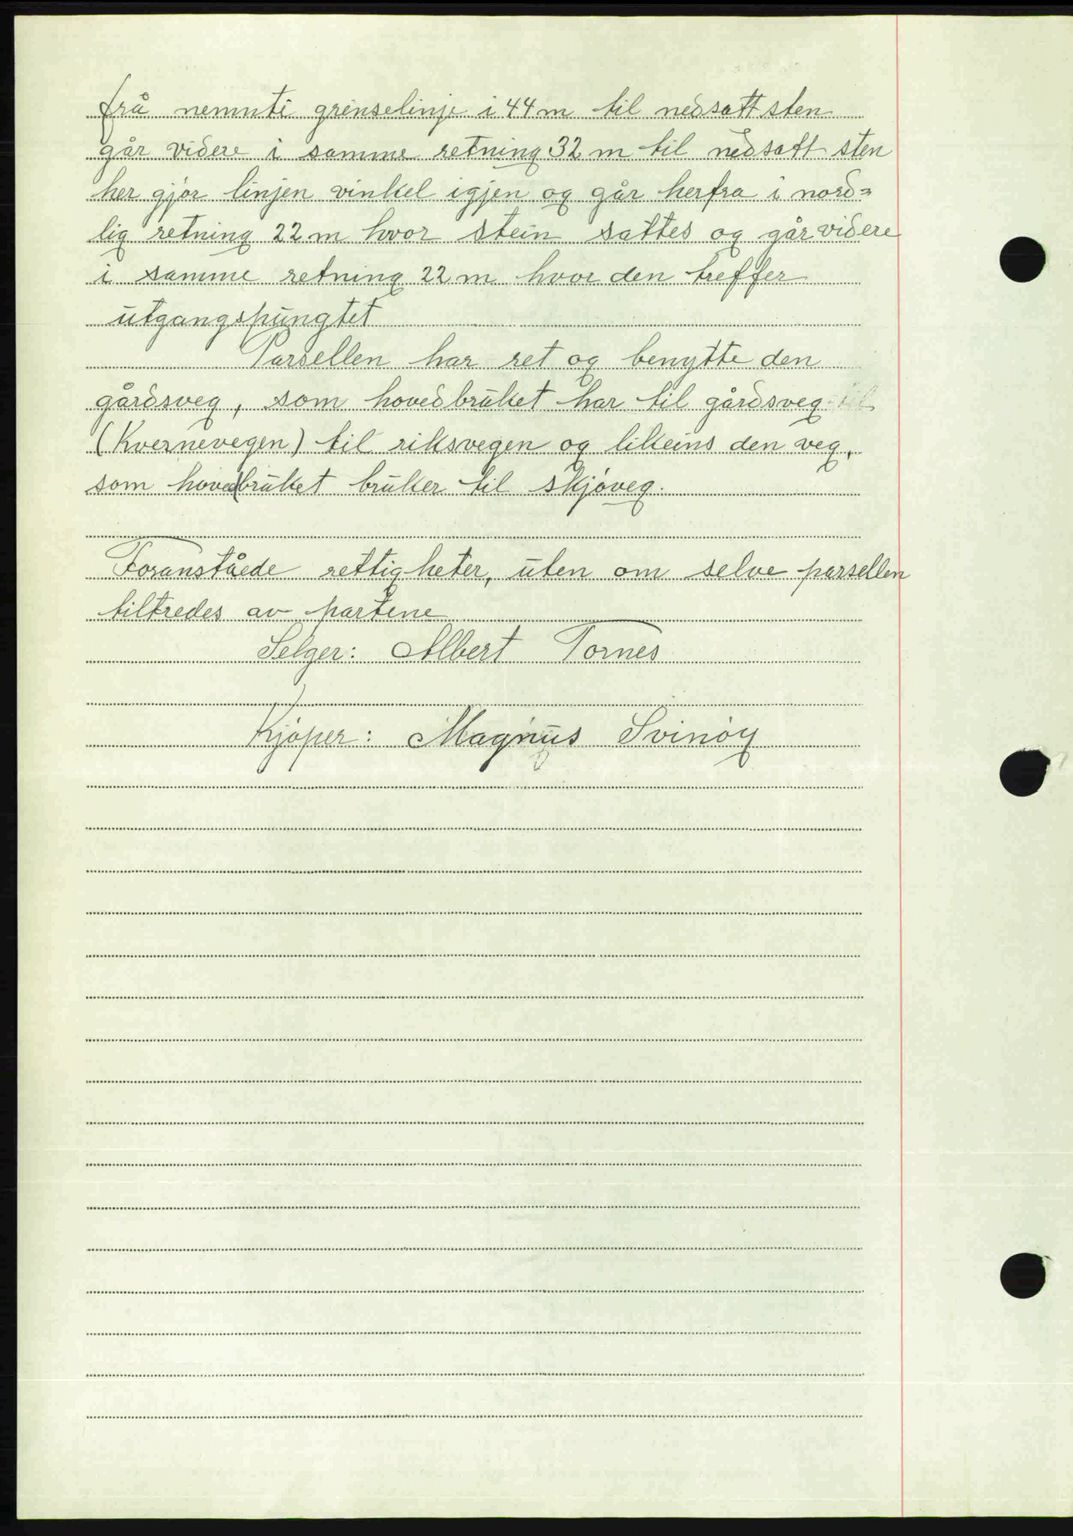 frå nemnti grenselinje i 44 m til nedsatt sten
går videre i samme retning 32 m til nedsatt sten
her gjör linjen vinkel igjen og går herfra i nord=
lig retning 22 m hvor stein sattes og går videre
i samme retning 22 m hvor den treffer
utgangspungtet
Parsellen har ret og benytte den
gårdsveg, som hovedbruket har til gårdsveg til
(Kvernevegen) til riksvegen og likeins den veg,
som hovedbruket bruker til skjöveg.
Foranståede rettigheter, uten om selve parsellen
tiltredes av partene
Selger: Albert Tornes
Kjöper: Magnus Svinöy